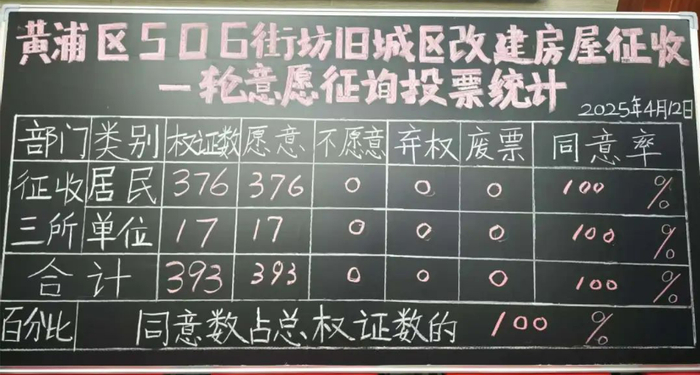 黄浦区506街坊旧城区改建房屋征收
一轮意愿征询投票统计
2025年4月12日
部门 类别 权证数 愿意 不愿意 弃权 废票 同意率
征收 居民 376 376 0 0 0 100 %
三所 单位 17 17 0 0 0 100 %
合计 393 393 0 0 0 100 %
百分比 同意数占总权证数的 100 %